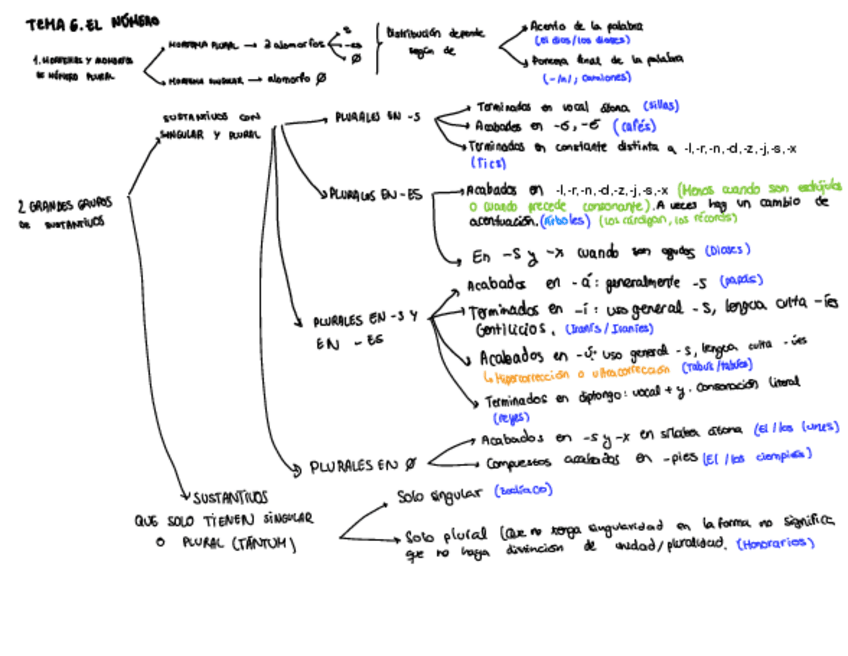 TEMA 6. EL NÚMERO
1. MORFEMAS Y
DE NÚMERO PLURAL
MORFEMA PLURAL → 2 alomorfos
s
-es
Ø
MORFEMA SINGULAR → alomorfo Ø
Distribución depende
según de
Acento de la palabra
(el dios/los dioses)
Fonema final de la palabra
(-/n/, camiones)
2 GRANDES GRUPOS
DE SUSTANTIVOS
SUSTANTIVOS CON
SINGULAR Y PLURAL
PLURALES EN -S
Terminados en vocal átona (sillas)
Acabados en -ó, -é (cafés)
Terminados en constante distinta a -l,-r,-n,-d,-z,-j,-s,-x
(Tics)
PLURALES EN -ES
Acabados en -l,-r,-n,-d,-z,-j,-s,-x (Menos cuando son esdrújulas
o cuando precede consonante). A veces hay un cambio de
acentuación. (Árboles) (Los cárdigan, los récords)
En -S y -x cuando son agudos (Dioses)
PLURALES EN -S Y
EN - ES
Acabados en -á: generalmente -s (papás)
Terminados en -í: uso general -s, lengua culta -íes
Gentilicios. (Iranís / Iraníes)
Acabados en -ú: uso general -s, lengua culta -úes
↳ Hipercorrección o ultracorrección (Tabús/tabúes)
Terminados en diptongo: vocal + y. Consonación literal
(reyes)
PLURALES EN Ø
Acabados en -s y -x en sílaba átona (El /los lunes)
Compuestos acabados en -pies (El /los ciempiés)
SUSTANTIVOS
QUE SOLO TIENEN SINGULAR
O PLURAL (TÁNTUM)
Solo singular (zodíaco)
Solo plural (Que no tenga singularidad en la forma no significa
que no haya distinción de unidad/pluralidad. (Honorarios)